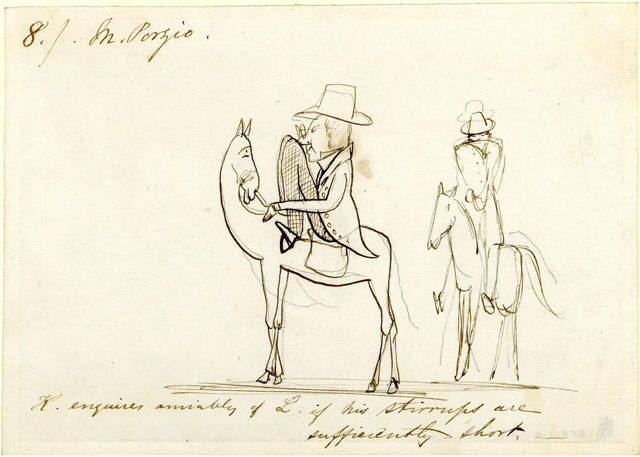 8./. M. Porzio.
K. enquires amiably of L. if his stirrups are
sufficiently short.